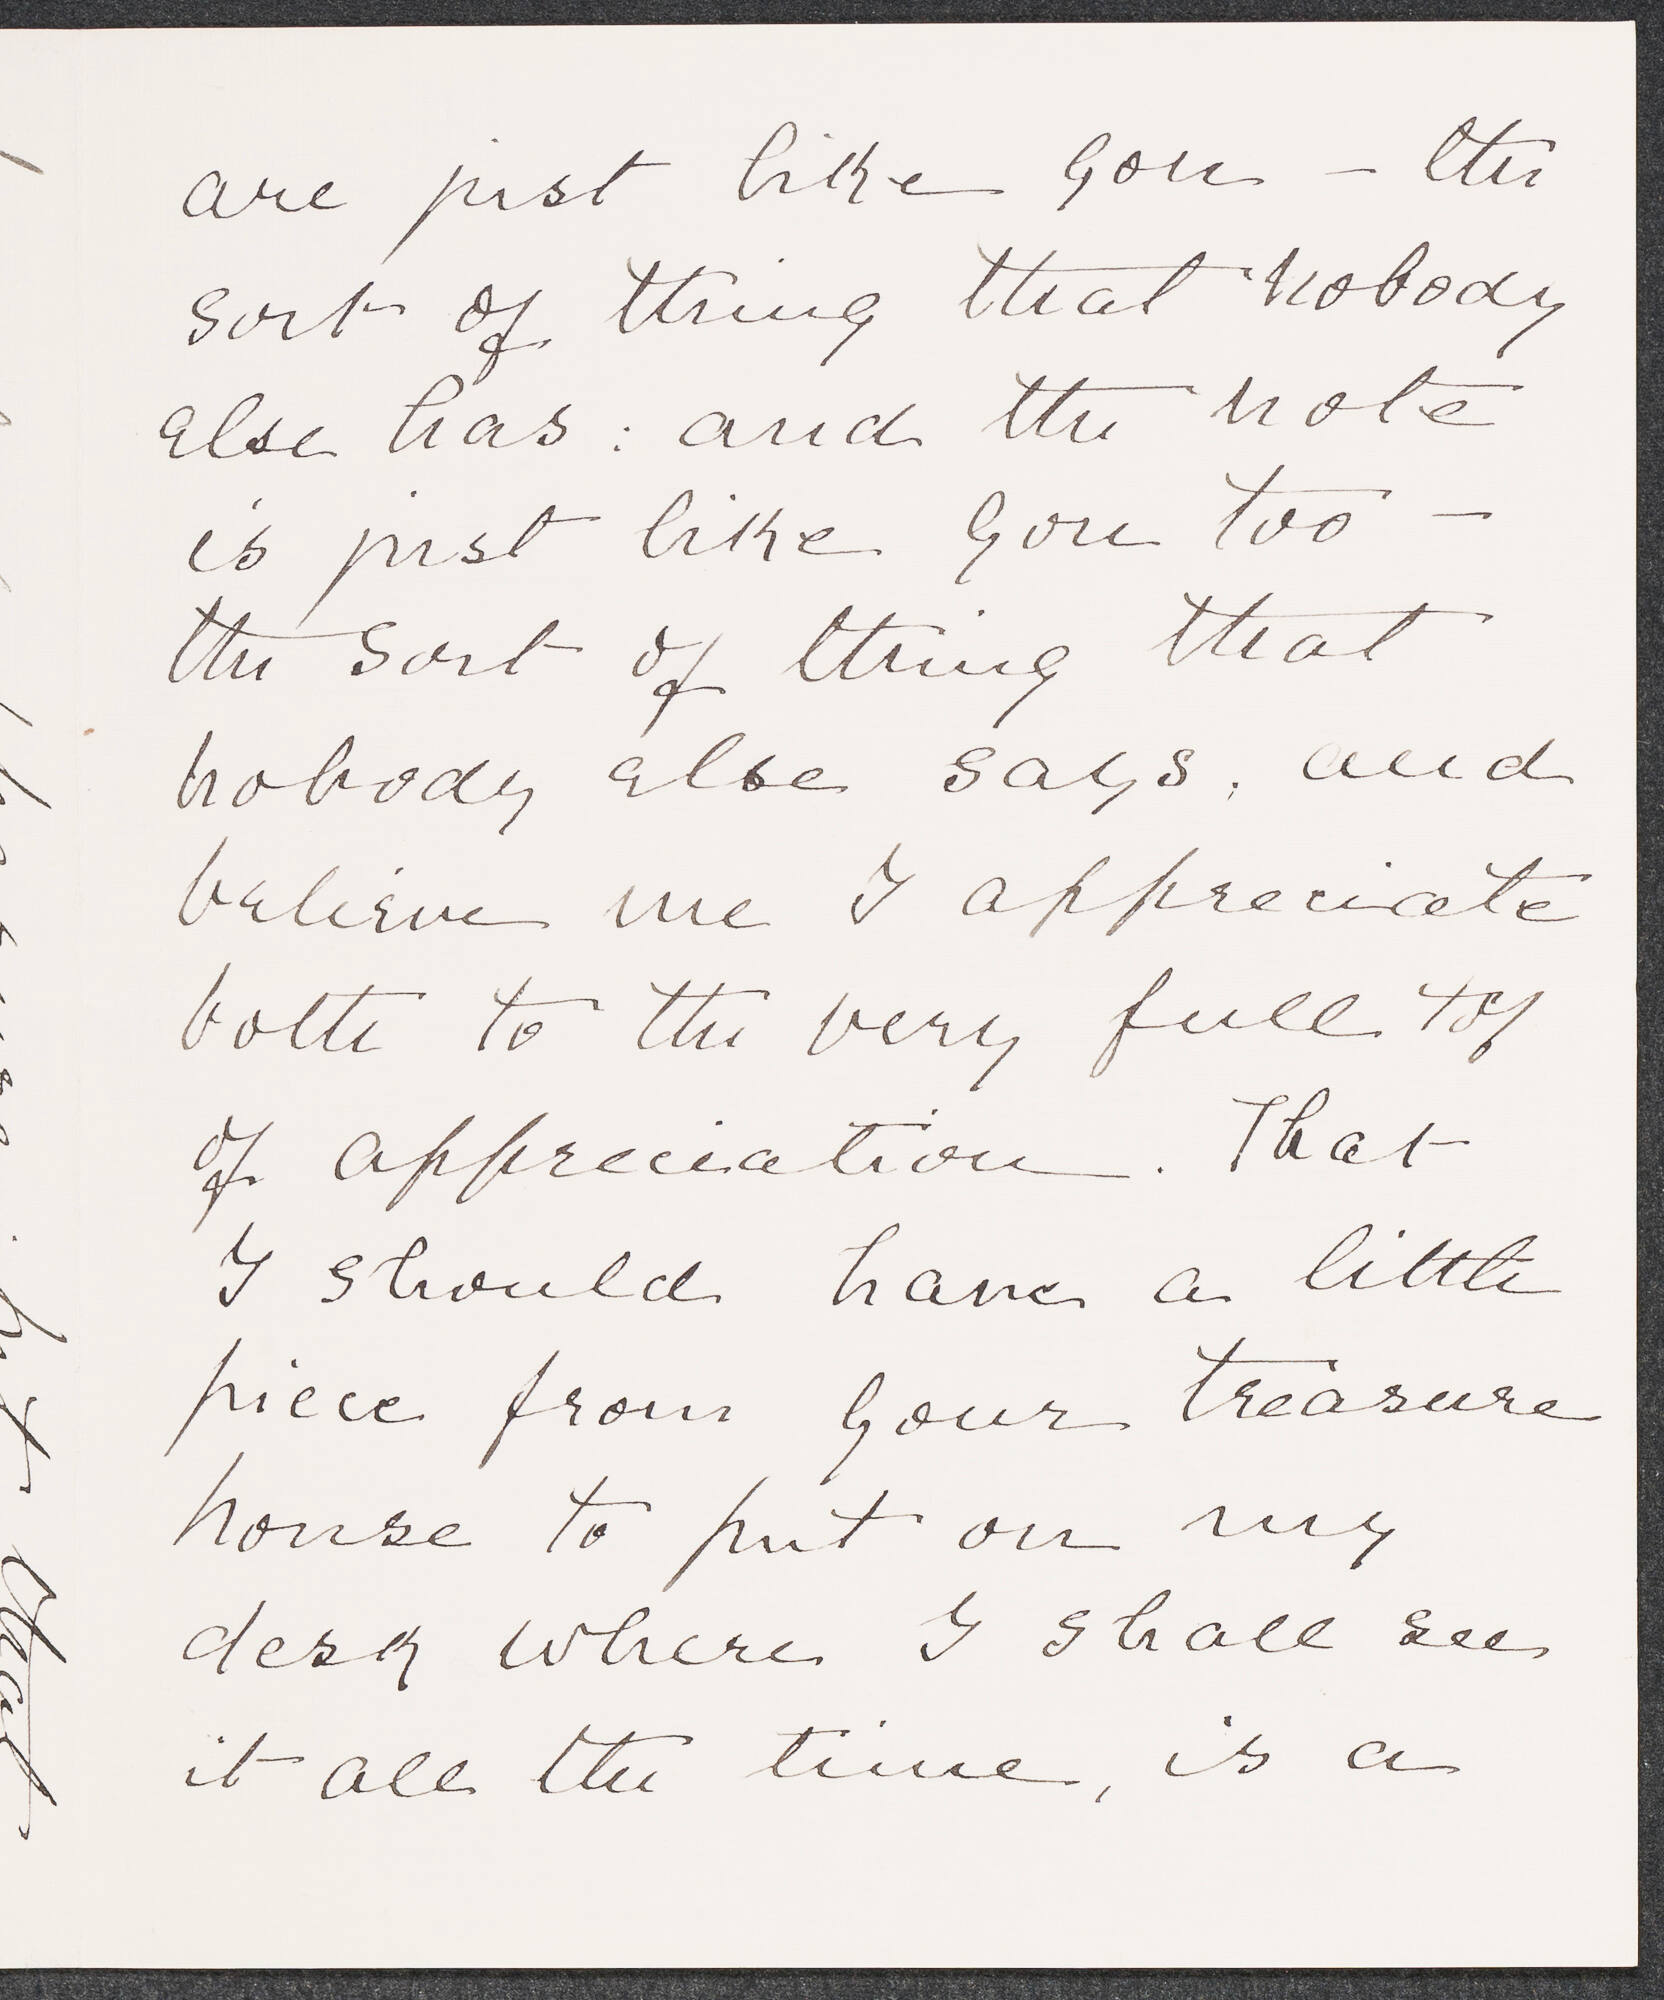 are just like you – the
sort of thing that nobody
else has: and the note
is just like you too –
the sort of thing that
nobody else says; and
believe me I appreciate
both to the very full top
of appreciation. That
I should have a little
piece from your treasure
house to put on my
desk where I shall see
it all the time, is a
that